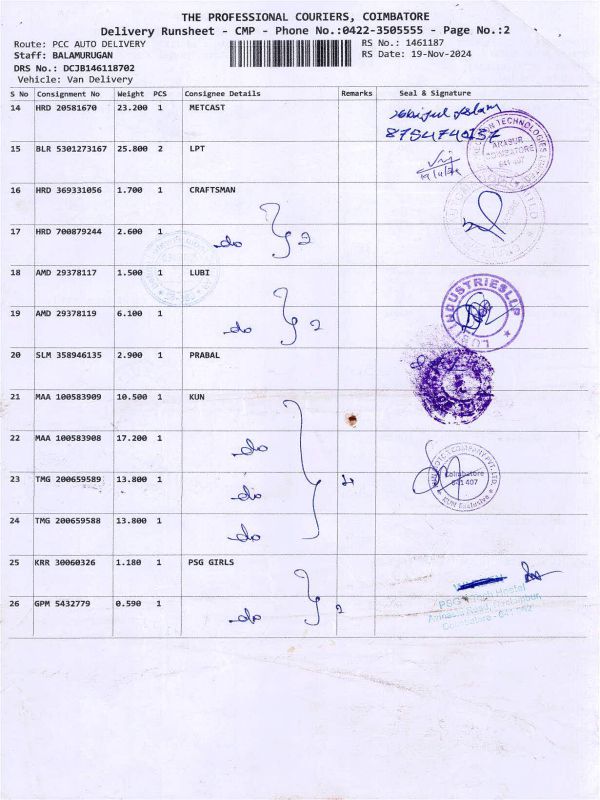 THE PROFESSIONAL COURIERS, COIMBATORE
Delivery Runsheet - CMP - Phone No.:0422-3505555 - Page No.:2
Route: PCC AUTO DELIVERY RS No.: 1461187
Staff: BALAMURUGAN RS Date: 19-Nov-2024
DRS No.: DCJB146118702
Vehicle: Van Delivery
S No Consignment No Weight PCS Consignee Details Remarks Seal & Signature
14 HRD 20581670 23.200 1 METCAST
8754740137
15 BLR 5301273167 25.800 2 LPT
TECHNOLOGIES
ARASUR
COIMBATORE
641 407
16 HRD 369331056 1.700 1 CRAFTSMAN
17 HRD 700879244 2.600 1 -do 2
18 AMD 29378117 1.500 1 LUBI
LUBI INDUSTRIES LLP
19 AMD 29378119 6.100 1 -do 2
20 SLM 358946135 2.900 1 PRABAL
21 MAA 100583909 10.500 1 KUN
22 MAA 100583908 17.200 1 -do
Coimbatore
641 407
KUN Exclusive
23 TMG 200659589 13.800 1 -do 4
24 TMG 200659588 13.800 1 -do
25 KRR 30060326 1.180 1 PSG GIRLS
26 GPM 5432779 0.590 1 -do 2
PSG Tech Hostel
Avinashi Road, Peelamedu,
Coimbatore